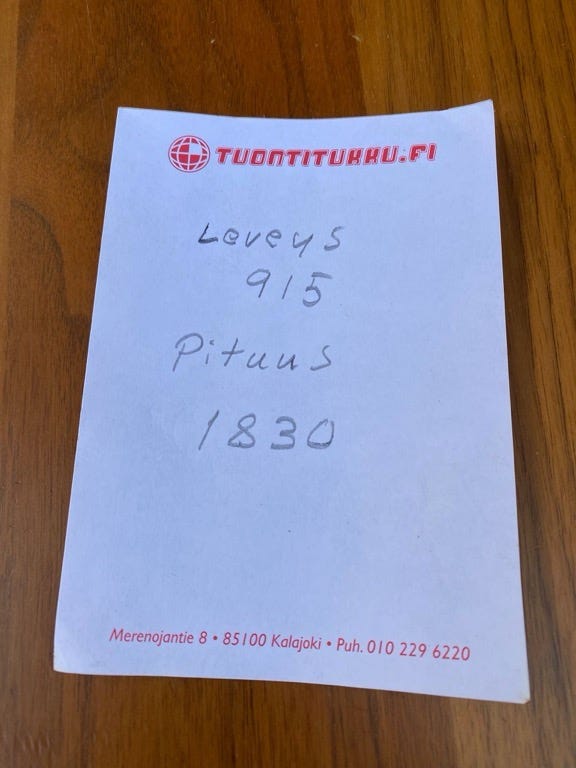 TUONTITUKKU.FI
Leveys
915
Pituus
1830
Merenojantie 8 • 85100 Kalajoki • Puh. 010 229 6220